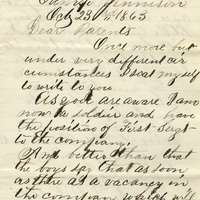 Camp Jennison
Oct 23rd 1863
Dear Parents
Once more but
under very different cir
cumstances I seat myself
to write to you
As you are aware I am
now a soldier and have
the position of First Sergt
in the company.
And better than that
the boys say that as soon
as there is a vacancy in
the company